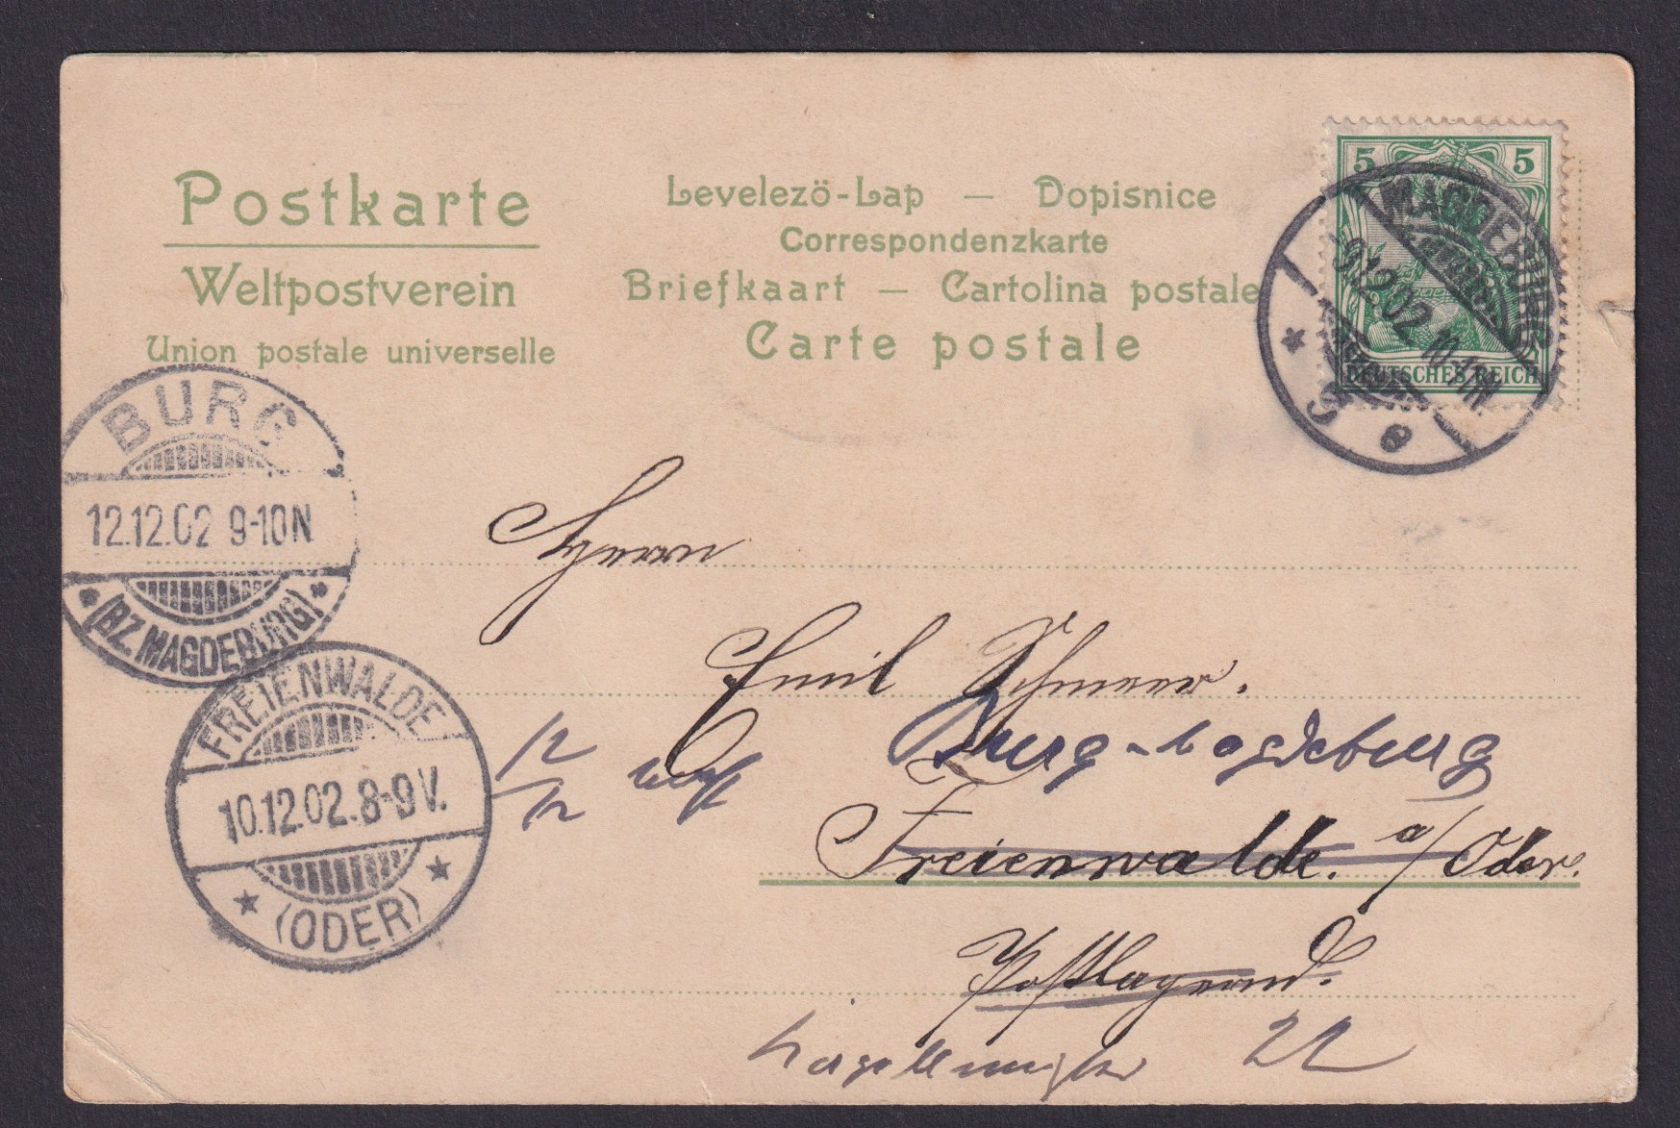 Postkarte
Weltpostverein
Union postale universelle
Levelező-Lap — Dopisnice
Correspondenzkarte
Briefkaart — Cartolina postale
Carte postale
5 5
DEUTSCHES REICH
MAGDEBURG
-9.12.02. 10-11N.
* 9 e
BURG
12.12.02 9-10N
* (BZ. MAGDEBURG) *
FREIENWALDE
10.12.02. 8-9V.
* (ODER) *
Herrn
Emil Schmeer.
Burg-Magdeburg
12
12
Freienwalde. a/Oder.
Postlagernd.
22